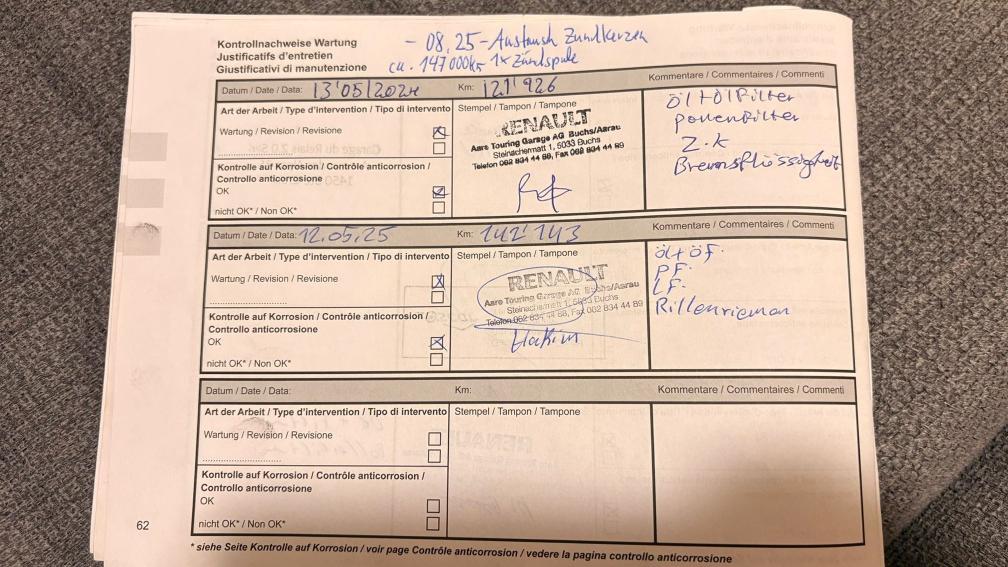 Kontrollnachweise Wartung
Justificatifs d'entretien
Giustificativi di manutenzione
- 08.25 - Austausch Zündkerzen
ca. 147000km 1x Zündspule
Datum / Date / Data: 13'05/2024 Km: 121'926 Kommentare / Commentaires / Commenti
Art der Arbeit / Type d'intervention / Tipo di intervento Stempel / Tampon / Tampone
Wartung / Revision / Revisione
Kontrolle auf Korrosion / Contrôle anticorrosion /
Controllo anticorrosione
OK
nicht OK* / Non OK*
RENAULT
Aare Touring Garage AG Buchs/Aarau
Steinachermatt 1, 5033 Buchs
Telefon 062 834 44 88, Fax 062 834 44 89
Öl+Ölfilter
pollenfilter
Z.K
Bremsflüssigkeit
Datum / Date / Data: 12.05.25 Km: 142'143 Kommentare / Commentaires / Commenti
Art der Arbeit / Type d'intervention / Tipo di intervento Stempel / Tampon / Tampone
Wartung / Revision / Revisione
Kontrolle auf Korrosion / Contrôle anticorrosion /
Controllo anticorrosione
OK
nicht OK* / Non OK*
RENAULT
Aare Touring Garage AG Buchs/Aarau
Steinachermatt 1, 5033 Buchs
Telefon 062 834 44 88, Fax 062 834 44 89
Hakim
Öl+ÖF.
PF.
LF.
Rillenriemen
Datum / Date / Data: Km: Kommentare / Commentaires / Commenti
Art der Arbeit / Type d'intervention / Tipo di intervento Stempel / Tampon / Tampone
Wartung / Revision / Revisione
Kontrolle auf Korrosion / Contrôle anticorrosion /
Controllo anticorrosione
OK
nicht OK* / Non OK*
62
* siehe Seite Kontrolle auf Korrosion / voir page Contrôle anticorrosion / vedere la pagina controllo anticorrosione